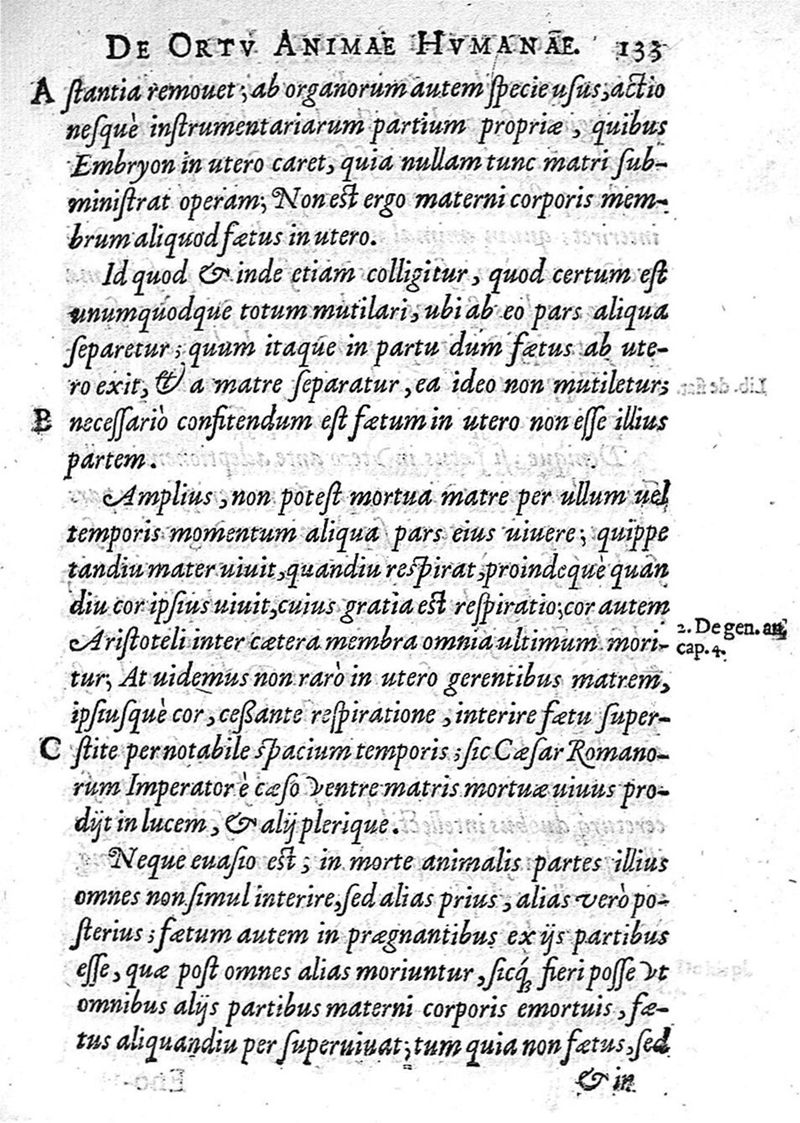 DE ORTV ANIMAE HVMANAE. 133
A stantia remouet; ab organorum autem specie usus, actio
nesquè instrumentariarum partium propriæ, quibus
Embryon in utero caret, quia nullam tunc matri sub-
ministrat operam; Non est ergo materni corporis mem-
brum aliquod fætus in utero.
Id quod & inde etiam colligitur, quod certum est
unumquodque totum mutilari, ubi ab eo pars aliqua
separetur; quum itaque in partu dum fætus ab ute-
ro exit, & a matre separatur, ea ideo non mutiletur;
B necessariò confitendum est fætum in utero non esse illius
partem.
Amplius, non potest mortua matre per ullum uel
temporis momentum aliqua pars eius uiuere; quippe
tandiu mater uiuit, quandiu respirat, proindequè quan
diu cor ipsius uiuit, cuius gratia est respiratio; cor autem
Aristoteli inter cætera membra omnia ultimum mori-
2. De gen. an.
cap. 4.
tur; At uidemus non rarò in utero gerentibus matrem,
ipsiusquè cor, cessante respiratione, interire fætu super-
C stite per notabile spacium temporis; sic Cæsar Romano-
rum Imperator è cæso ventre matris mortuæ uiuus pro-
dijt in lucem, & alij plerique.
Neque euasio est; in morte animalis partes illius
omnes non simul interire, sed alias prius, alias verò po-
sterius; fætum autem in prægnantibus ex ijs partibus
esse, quæ post omnes alias moriuntur, sicq́; fieri posse vt
omnibus alijs partibus materni corporis emortuis, fæ-
tus aliquandiu per superuiuat; tum quia non fætus, sed
& in